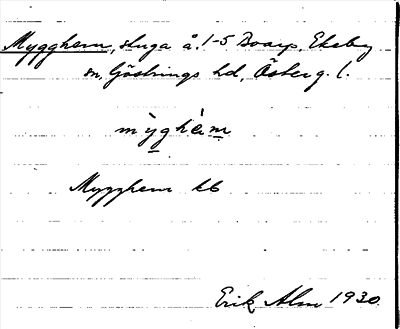 Mygghem, stuga å 1-5 Boarp, Ekeby
sn, Göstrings hd, Österg. l.
mỳghèm
Mygghem kb
Erik Alm 1930